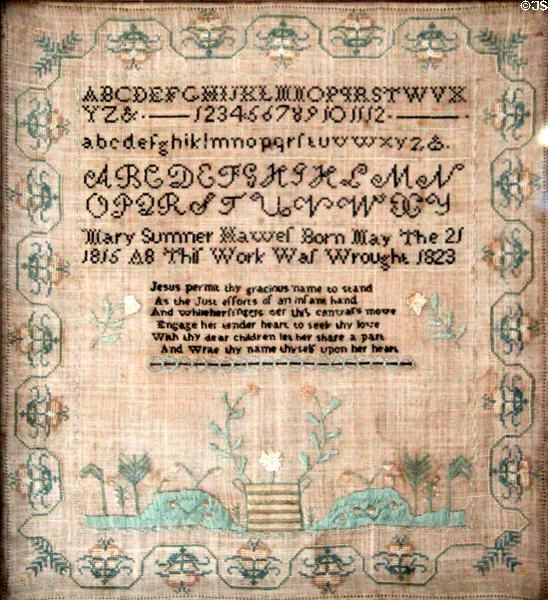 ©JS
ABCDEFGHIJKLMNOPQRSTWVX
YZ& 123456789101112
abcdefghiklmnopqrſtuvwxyz&.
ABCDEFGHIKLMN
OPQRSTUVWXY
Mary Sumner Haweſ Born May The 21
1815 A8 Thiſ Work Waſ Wrought 1823
Jesus permit thy gracious name to stand
As the Just efforts of an infant hand
And while her fingers oer this canvaſs move
Engage her tender heart to seek thy love
With thy dear children let her share a part
And Write thy name thyself upon her heart